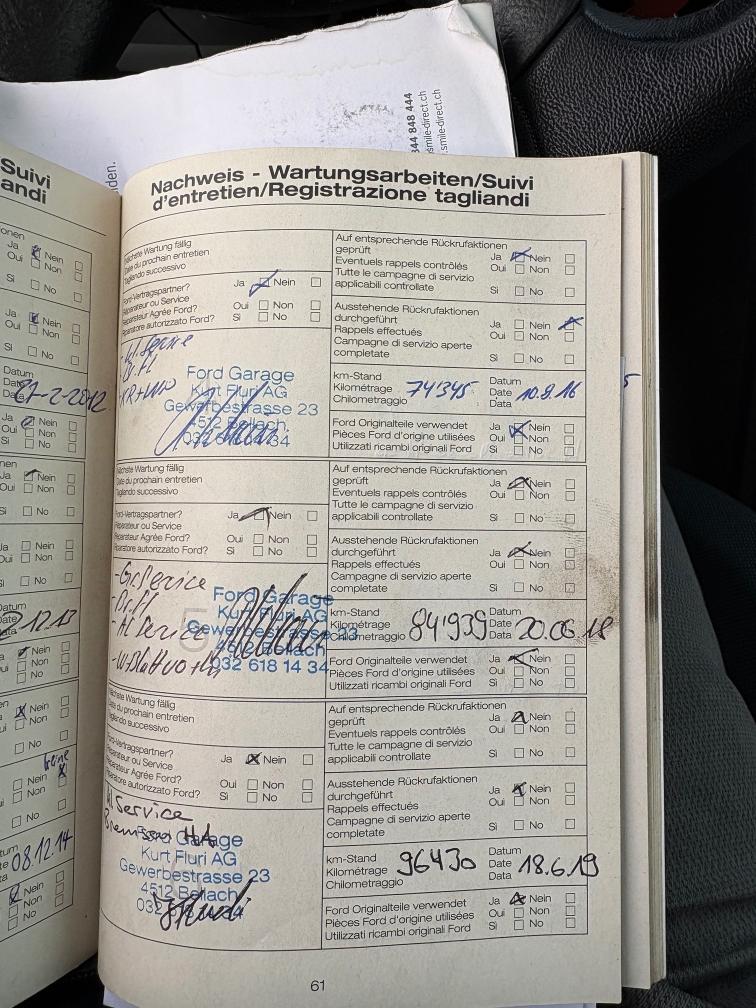 844 848 444
smile-direct.ch
.smile-direct.ch
den.
Suivi
andi
Ja Nein
Oui Non
Si No
Ja Nein
Oui Non
Si No
Datum
Date
Data
-2-2012
Ja Nein
Oui Non
Si No
Ja Nein
Oui Non
Si No
Ja Nein
Oui Non
Si No
Datum
Date
12.13
Nein
Non
No
Nein
Non
No
keine
Nein
Non
No
08.12.14
Nein
Non
No
Nachweis - Wartungsarbeiten/Suivi
d'entretien/Registrazione tagliandi
Nächste Wartung fällig
Date du prochain entretien
Tagliando successivo
Ford-Vertragspartner?
Réparateur ou Service
Réparateur Agrée Ford?
Riparatore autorizzato Ford?
Ja Nein
Oui Non
Si No
Ford Garage
Kurt Fluri AG
Gewerbestrasse 23
4512 Bellach
Auf entsprechende Rückrufaktionen
geprüft
Eventuels rappels contrôlés
Tutte le campagne di servizio
applicabili controllate
Ja Nein
Oui Non
Si No
Ausstehende Rückrufaktionen
durchgeführt
Rappels effectués
Campagne di servizio aperte
completate
Ja Nein
Oui Non
Si No
km-Stand
Kilométrage
Chilometraggio
74'345
Datum
Date
Data
10.8.16
Ford Originalteile verwendet
Pièces Ford d'origine utilisées
Utilizzati ricambi originali Ford
Ja Nein
Oui Non
Si No
Nächste Wartung fällig
Date du prochain entretien
Tagliando successivo
Ford-Vertragspartner?
Réparateur ou Service
Réparateur Agrée Ford?
Riparatore autorizzato Ford?
Ja Nein
Oui Non
Si No
- Gr. Service
- Br. Fl
Ford Garage
Kurt Fluri AG
Gewerbestrasse 23
4512 Bellach
032 618 14 34
Auf entsprechende Rückrufaktionen
geprüft
Eventuels rappels contrôlés
Tutte le campagne di servizio
applicabili controllate
Ja Nein
Oui Non
Si No
Ausstehende Rückrufaktionen
durchgeführt
Rappels effectués
Campagne di servizio aperte
completate
Ja Nein
Oui Non
Si No
km-Stand
Kilométrage
Chilometraggio
84'939
Datum
Date
Data
20.06.18
Ford Originalteile verwendet
Pièces Ford d'origine utilisées
Utilizzati ricambi originali Ford
Ja Nein
Oui Non
Si No
Nächste Wartung fällig
Date du prochain entretien
Tagliando successivo
Ford-Vertragspartner?
Réparateur ou Service
Réparateur Agrée Ford?
Riparatore autorizzato Ford?
Ja Nein
Oui Non
Si No
Kl Service
Bremsen HA
Ford Garage
Kurt Fluri AG
Gewerbestrasse 23
4512 Bellach
Auf entsprechende Rückrufaktionen
geprüft
Eventuels rappels contrôlés
Tutte le campagne di servizio
applicabili controllate
Ja Nein
Oui Non
Si No
Ausstehende Rückrufaktionen
durchgeführt
Rappels effectués
Campagne di servizio aperte
completate
Ja Nein
Oui Non
Si No
km-Stand
Kilométrage
Chilometraggio
96430
Datum
Date
Data
18.6.19
Ford Originalteile verwendet
Pièces Ford d'origine utilisées
Utilizzati ricambi originali Ford
Ja Nein
Oui Non
Si No
61